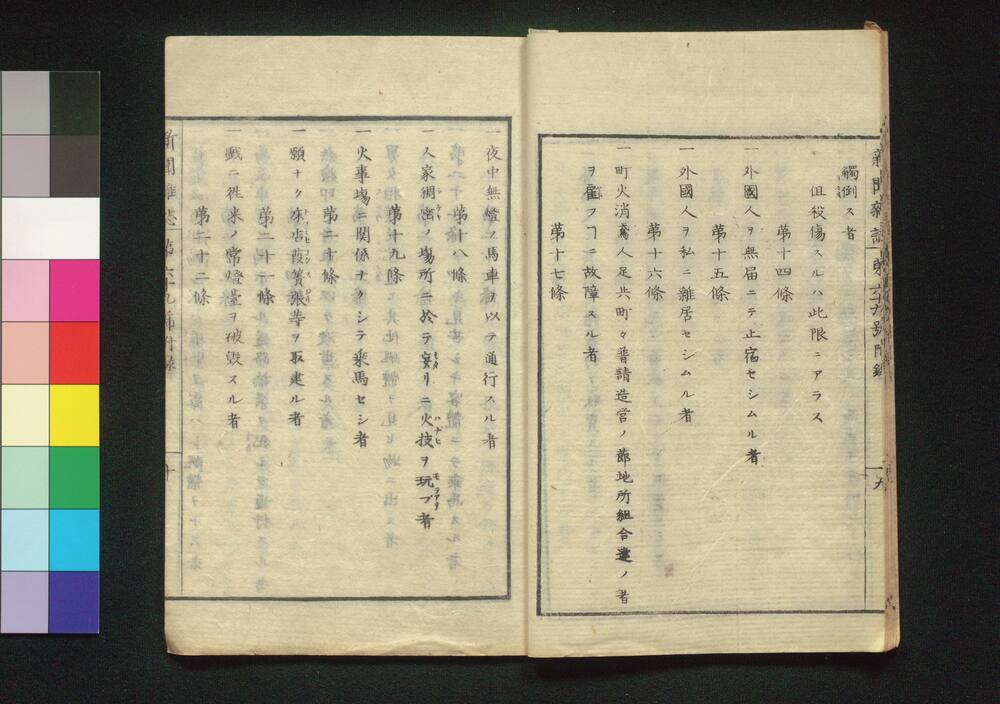 新聞雜誌 第六十九號附錄
九
觸倒ス者
但殺傷スルハ此限ニアラス
第十四條
一外國人ヲ無届ニテ止宿セシムル者
第十五條
一外國人ヲ私ニ雜居セシムル者
第十六條
一町火消鳶人足共町々普請造営ノ節地所組合違ノ者
ヲ雇フヿニ故障スル者
第十七條
一夜中無燈ノ馬車ヲ以テ通行スル者
第十八條
一人家稠密ノ場所ニ於テ妄リニ火技ヲ玩ブ者
第十九條
一火事場ニ関係ヲクシテ乘馬セシ者
第二十條
一願ナク床店葭簀張等ヲ取建ル者
第二十一條
一戲ニ徃来ノ常燈臺ヲ破毀スル者
第二十二條
新聞雜誌 第六十九號附錄
十